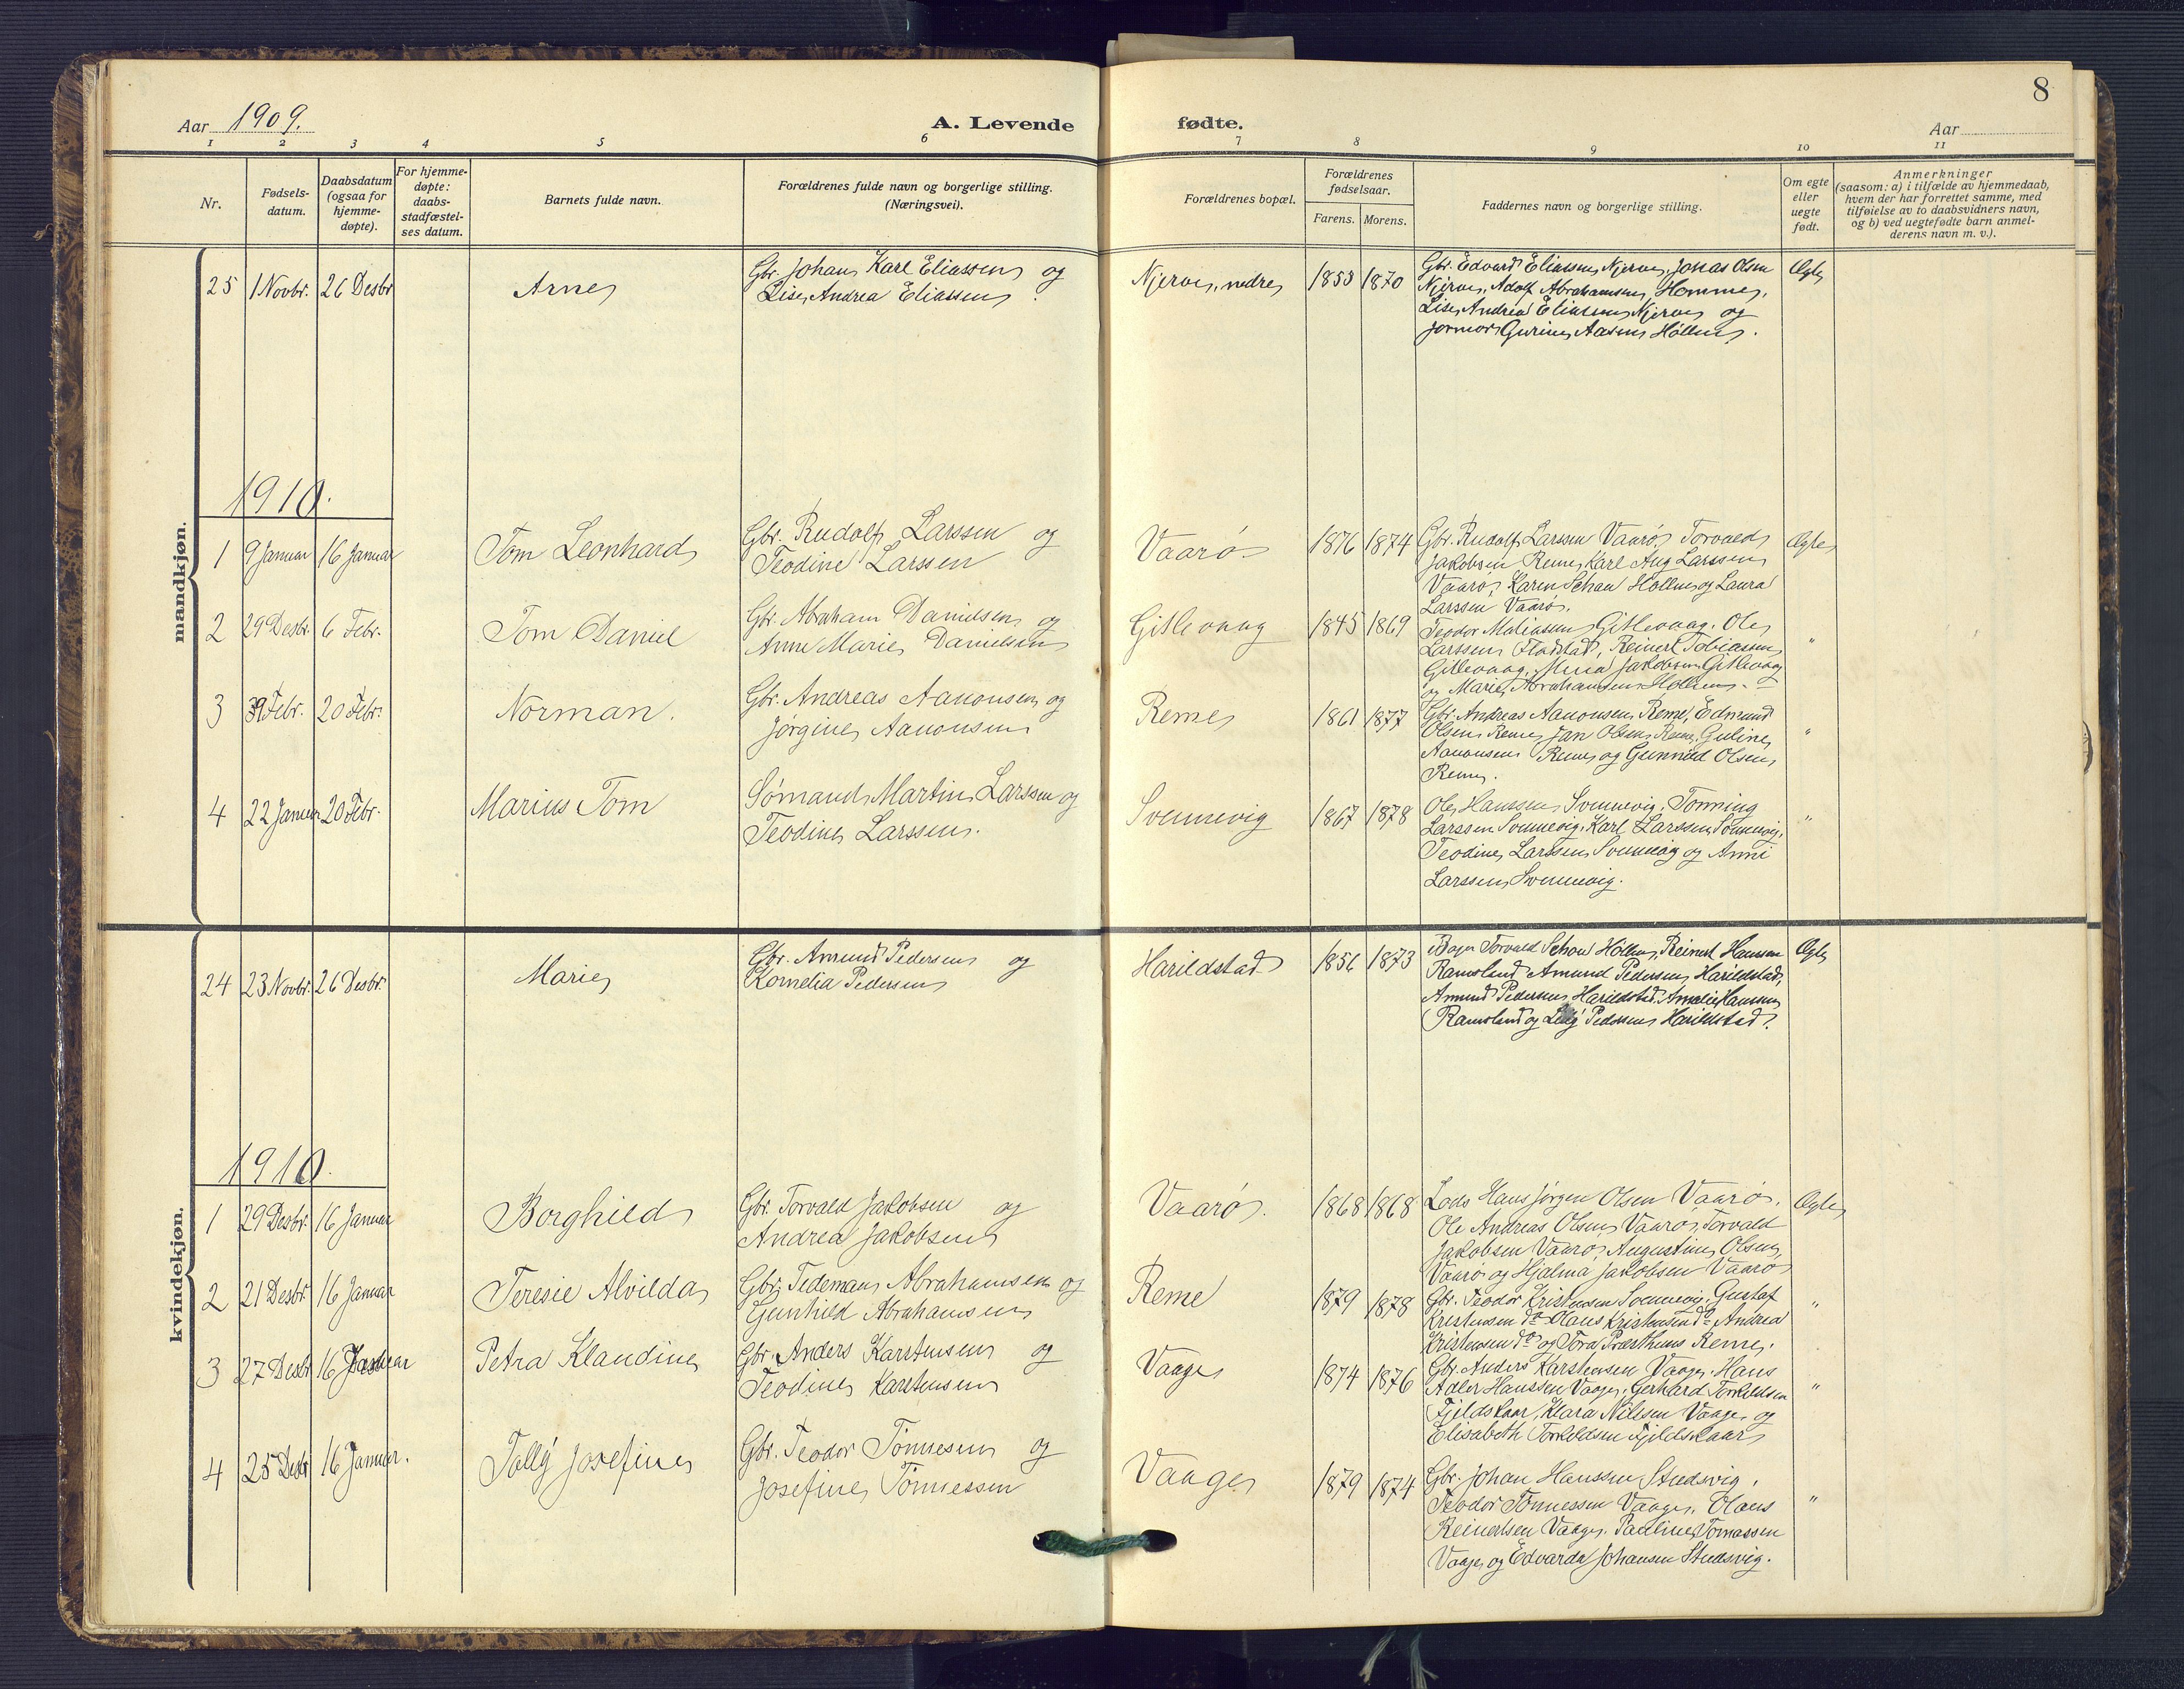 8
Aar 1909.
A. Levende fødte.
Aar
1 2 3 4 5 6 7 8 9 10 11
Nr.
Fødsels-
datum.
Daabsdatum
(ogsaa for
hjemme-
døpte).
For hjemme-
døpte:
daabs-
stadfæstel-
ses datum.
Barnets fulde navn.
Forældrenes fulde navn og borgerlige stilling.
(Næringsvei).
Forældrenes bopæl.
Forældrenes
fødselsaar.
Farens. Morens.
Faddernes navn og borgerlige stilling.
Om egte
eller
uegte
født.
Anmerkninger
(saasom: a) i tilfælde av hjemmedaab,
hvem der har forrettet samme, med
tilføielse av to daabsvidners navn,
og b) ved uegtefødte barn anmel-
derens navn m. v.).
mandkjøn.
25 1 Novbr. 26 Desbr
Arne
Gbr. Johan Karl Eliassen og
Lise Andrea Eliassen.
Njerve, nedre 1853 1870
Gbr. Edvard Eliassen Njerve, Jonas Olsen
Njerve, Adolf Abrahamsen, Homme,
Lise Andrea Eliassen Njerve og
jormor Gurine Aasen Höllen.
Ægte
1910.
1 9 Januar 16 Januar
Tom Leonhard
Gbr. Rudolf Larssen og
Teodine Larssen
Vaarø 1876 1874
Gbr. Rudolf Larssen Vaarø, Torvald
Jakobsen Reme, Karl Aug Larssen
Vaarø, Karen Schau Höllen og Laura
Larssen Vaarø.
Ægte
2 29 Desbr. 6 Febr.
Tom Daniel
Gbr. Abraham Danielsen og
Anne Marie Danielsen
Gitlevaag 1845 1869
Teodor Matiassen Gitlevaag. Ole
Larssen Fladstad, Reinert Tobiassen
Gitlevaag, Jakobsen Gitlevaag
og Marie Abrahamsen Höllen.
"
3 Febr. 20 Febr.
Norman.
Gbr. Andreas Aanonsen og
Jørgine Aanonsen
Reme 1861 1877
Gbr. Andreas Aanonsen Reme, Edmund
Olsen Reme, Jan Olsen Reme, Guline
Aanonsen Reme og Gunnild Olsen,
Reme.
"
4 22 Januar 20 Febr.
Marius Tom
Sømand Martin Larssen og
Teodine Larssen.
Svennevig 1867 1878
Ole Hanssen Svennevig. Tønning
Larssen Svennevig. Karl Larssen Svennevig.
Teodine Larssen Svennevig og Anni
Larssen Svennevig.
"
kvindekjøn.
24 23 Novbr. 26 Desbr.
Marie
Gbr. Amund Pedersen og
Kornelia Pedersen
Harildstad 1856 1873
Torvald Schau Höllen, Reinert Hanssen
Ramsland Amund Pedersen, Harildstad,
Amund Pedersen Harildstad. Amalie Hanssen
Ramsland og Pedersen Harildstad.
Ægte
1910.
1 29 Desbr. 16 Januar
Borghild
Gbr. Torvald Jakobsen og
Andrea Jakobsen
Vaarø. 1868 1868
Lods Hans Jørgen Olsen Vaarø.
Ole Andreas Olsen Vaarø, Torvald
Jakobsen Vaarø, Augustine Olsen,
Vaarø og Hjalma Jakobsen Vaarø
Ægte
2 21 Desbr. 16 Januar
Teresie Alvilda
Gbr. Tedeman Abrahamsen og
Gunhild Abrahamsen
Reme 1879 1878
Gbr. Teodor Kristensen Svennevig. Gustaf
Kristensen do Olaus Kristensen do Andrea
Kristensen do og Tora Præsthuus Reme.
"
3 27 Desbr 16 Januar
Petra Klaudine
Gbr. Anders Karstensen og
Teodine Karstensen
Vaage 1874 1876
Gbr. Anders Karstensen Vaage. Hans
Adler Hanssen Vaage, Gerhard Torkildsen
Fjeldskaar, Klara Nilssen Vaage og
Elisabeth Torkildsen Fjeldskaar
"
4 25 Desbr 16 Januar.
Tally Josefine
Gbr. Teodor Tönnesen og
Josefine Tönnessen
Vaage 1879 1874
Gbr. Johan Hanssen Studsvig.
Teodor Tönnessen Vaage. Olaus
Reinertsen Vaage. Pauline Tomassen
Vaage og Edvarda Johansen Studsvig.
"